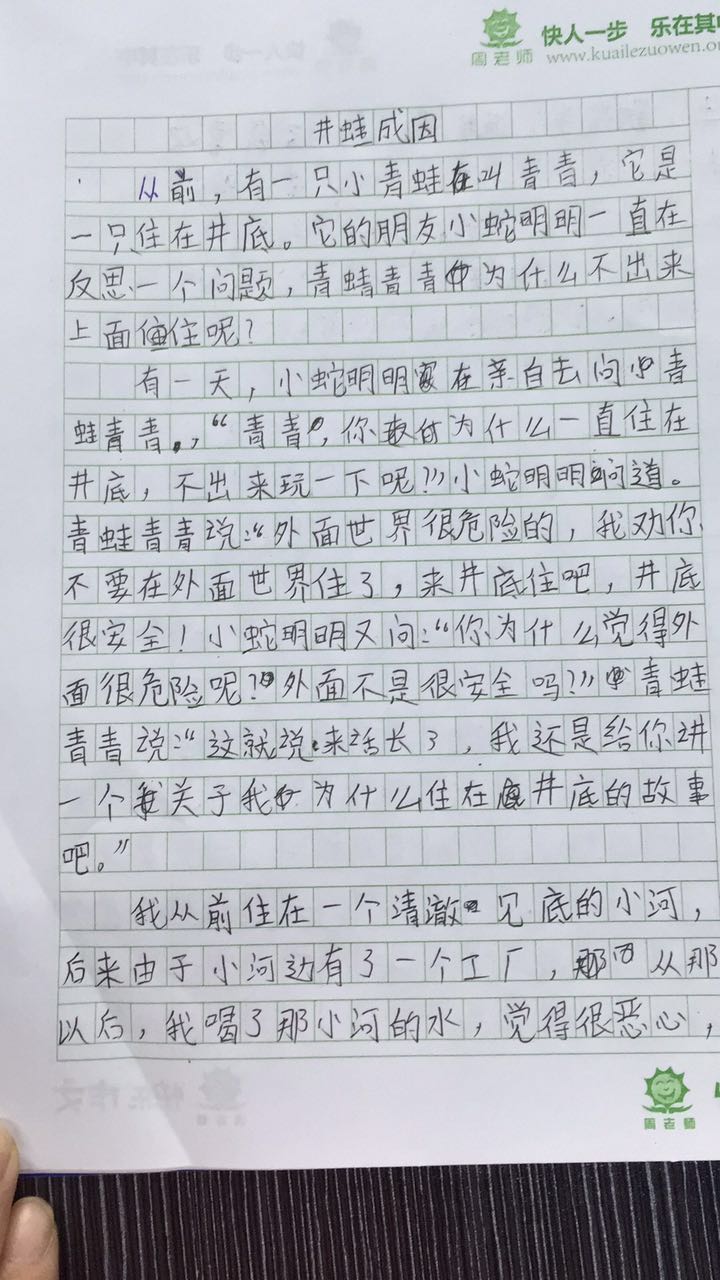 快人一步 乐在其中
周老师 www.kuailezuowen.o
井蛙成因
从前，有一只小青蛙叫青青，它是
一只住在井底。它的朋友小蛇明明一直在
反思一个问题，青蜻青青为什么不出来
上面住呢？
有一天，小蛇明明在亲自去问小青
蛙青青，“青青，你为什么一直住在
井底，不出来玩一下呢？”小蛇明明问道。
青蛙青青说：“外面世界很危险的，我劝你
不要在外面世界住了，来井底住吧，井底
很安全！小蛇明明又问：“你为什么觉得外
面很危险呢？外面不是很安全吗？”青蛙
青青说：“这就说来话长了，我还是给你讲
一个关于我为什么住在井底的故事
吧。”
我从前住在一个清澈见底的小河，
后来由于小河边有了一个工厂，从那
以后，我喝了那小河的水，觉得很恶心，
周老师